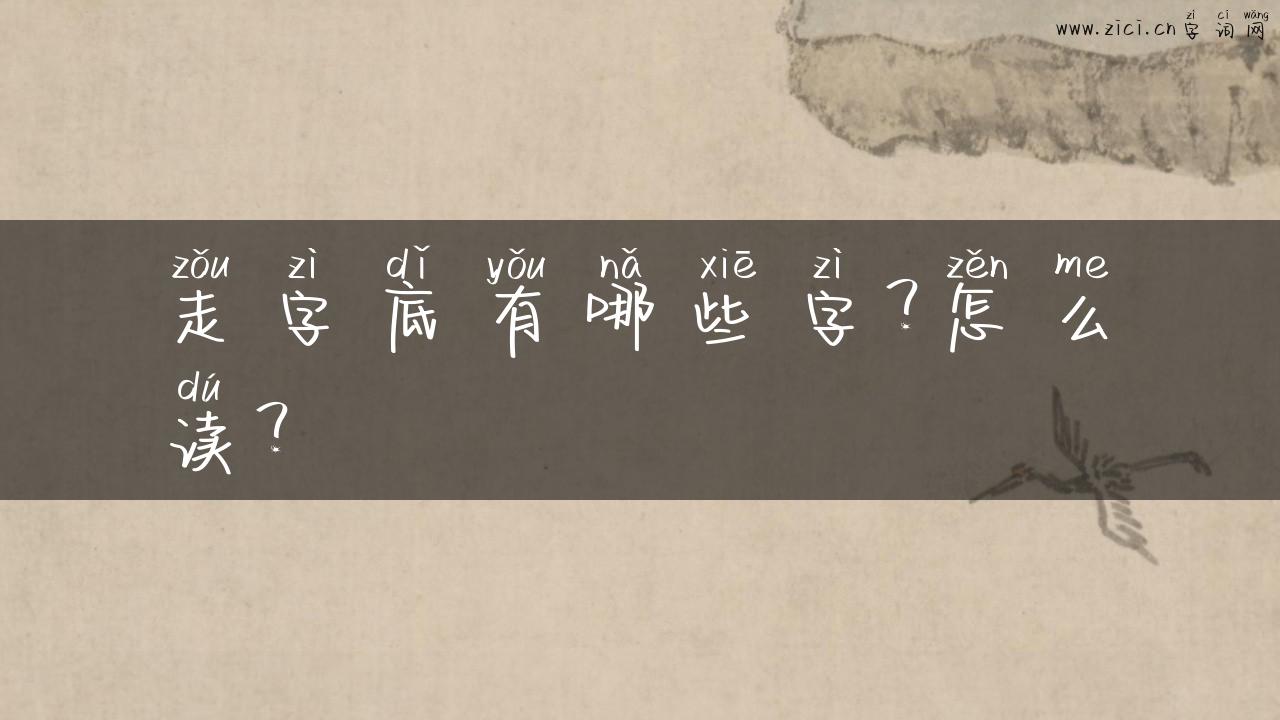 zì cí wǎng
www.zici.cn 字词网
zǒu zì dǐ yǒu nǎ xiē zì zěn me
走字底有哪些字？怎么
dú
读？